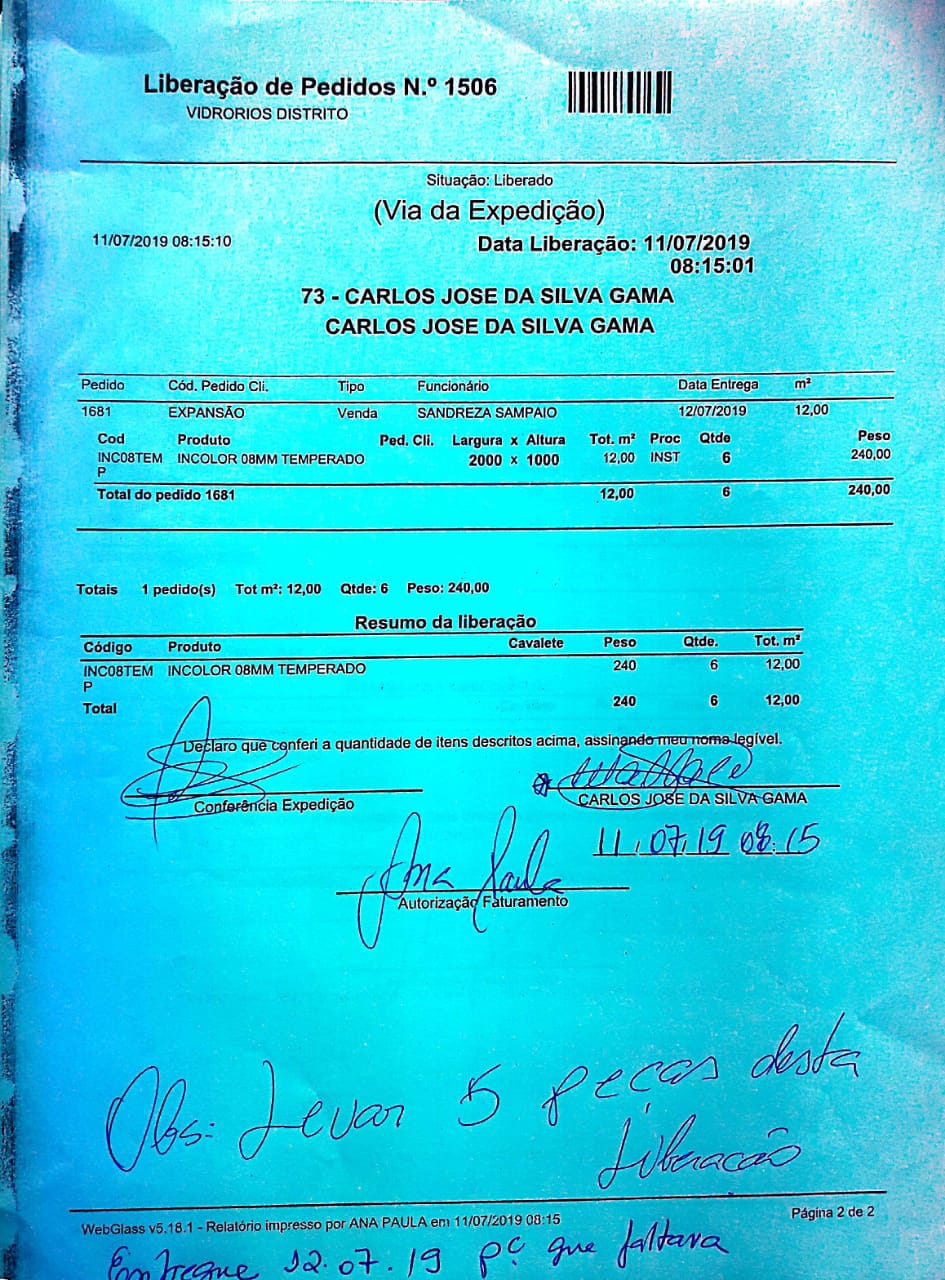 Liberação de Pedidos N.º 1506
VIDRORIOS DISTRITO
Situação: Liberado
(Via da Expedição)
11/07/2019 08:15:10
Data Liberação: 11/07/2019
08:15:01
73 - CARLOS JOSE DA SILVA GAMA
CARLOS JOSE DA SILVA GAMA
Pedido Cód. Pedido Cli. Tipo Funcionário Data Entrega m²
1681 EXPANSÃO Venda SANDREZA SAMPAIO 12/07/2019 12,00
Cod Produto Ped. Cli. Largura x Altura Tot. m² Proc Qtde Peso
INC08TEM INCOLOR 08MM TEMPERADO 2000 x 1000 12,00 INST 6 240,00
P
Total do pedido 1681 12,00 6 240,00
Totais 1 pedido(s) Tot m²: 12,00 Qtde: 6 Peso: 240,00
Resumo da liberação
Código Produto Cavalete Peso Qtde. Tot. m²
INC08TEM INCOLOR 08MM TEMPERADO 240 6 12,00
P
Total 240 6 12,00
Declaro que conferi a quantidade de itens descritos acima, assinando meu nome legível.
Conferência Expedição
CARLOS JOSE DA SILVA GAMA
11.07.19 08:15
Ana Paula
Autorização Faturamento
Obs: Levar 5 peças desta
Liberação
WebGlass v5.18.1 - Relatório impresso por ANA PAULA em 11/07/2019 08:15
Página 2 de 2
Entregue 12.07.19 pç que faltava